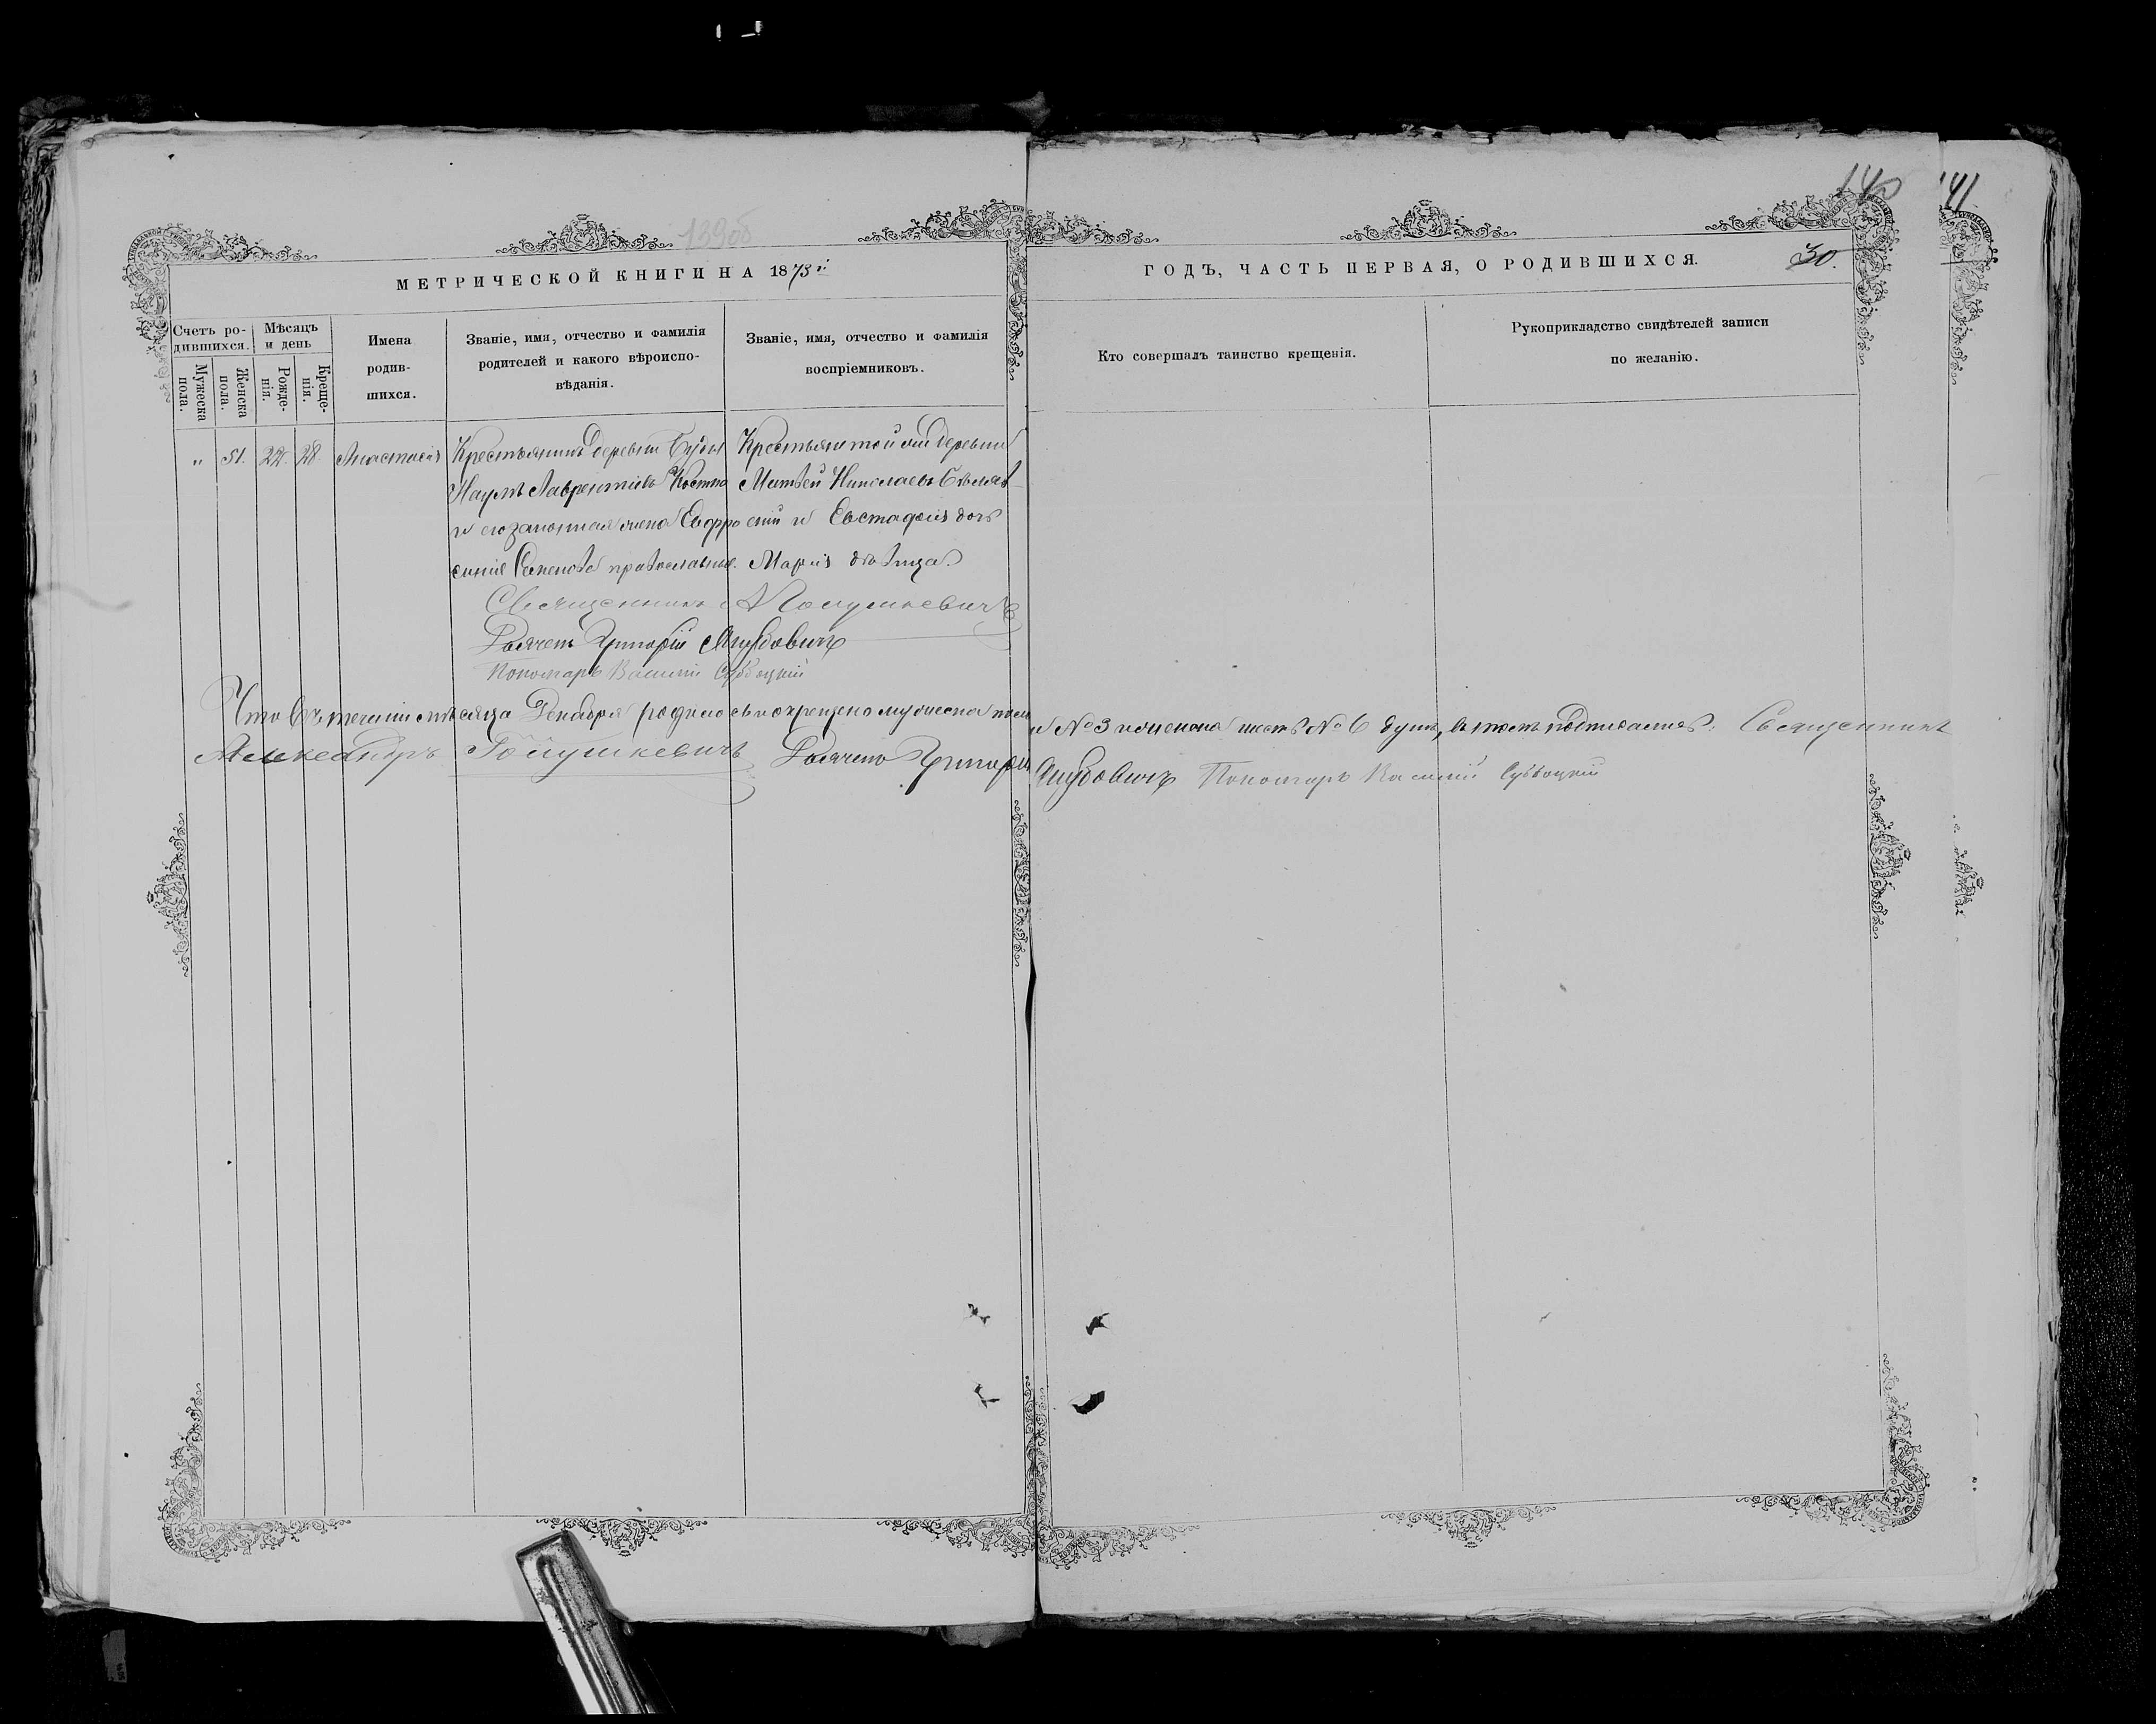 139об
140
141
МЕТРИЧЕСКОЙ КНИГИ НА 1873й
ГОДЪ, ЧАСТЬ ПЕРВАЯ, О РОДИВШИХСЯ.
30.
Счетъ ро-
дившихся.
Мужеска
пола.
Женска
пола.
Мѣсяцъ
и день
Рожде-
нія.
Креще-
нія.
Имена
родив-
шихся.
Званіе, имя, отчество и фамилія
родителей и какого вѣроиспо-
вѣданія.
Званіе, имя, отчество и фамилія
воспріемниковъ.
Кто совершалъ таинство крещенія.
Рукоприкладство свидѣтелей записи
по желанію.
" 51. 22. 28. Анастасія
Крестьянинъ деревни Буды
Наумъ Лаврентіевъ
и его законная жена Евфро
синія Семенова православные.
Крестьяне той же деревни
Матѳей Николаевъ
и Евстафія дочь
Марія дѣвица.
Священникъ А Гомушкевичъ
Дьячекъ Григорій Якубовичъ
Пономарь Василій Субоцкій
Что въ теченіи мѣсяца Декабря родилось и крещено мужеска пола №3 и женска шесть №6 душъ, въ томъ подписались: Священникъ
Александръ Гомушкевичъ Дьячекъ Григорій Якубовичъ Пономарь Василій Субоцкій